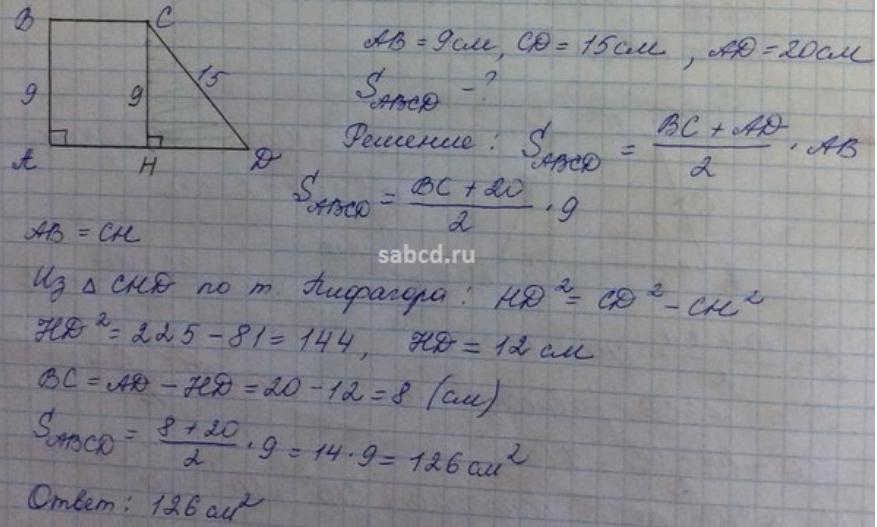 B C
AB = 9см, CD = 15см, AD = 20см
9 9 15
S_ABCD - ?
A H D
Решение: S_ABCD = (BC + AD)/2 · AB
S_ABCD = (BC + 20)/2 · 9
AB = CH
sabcd.ru
Из △ CHD по т. Пифагора: HD² = CD² - CH²
HD² = 225 - 81 = 144, HD = 12 см
BC = AD - HD = 20 - 12 = 8 (см)
S_ABCD = (8 + 20)/2 · 9 = 14 · 9 = 126 см²
Ответ: 126 см²